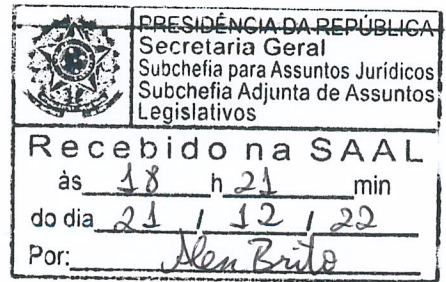 PRESIDÊNCIA DA REPÚBLICA
Secretaria Geral
Subchefia para Assuntos Jurídicos
Subchefia Adjunta de Assuntos
Legislativos
Recebido na SAAL
às 18 h 21 min
do dia 21 / 12 / 22
Por: Alen Brito